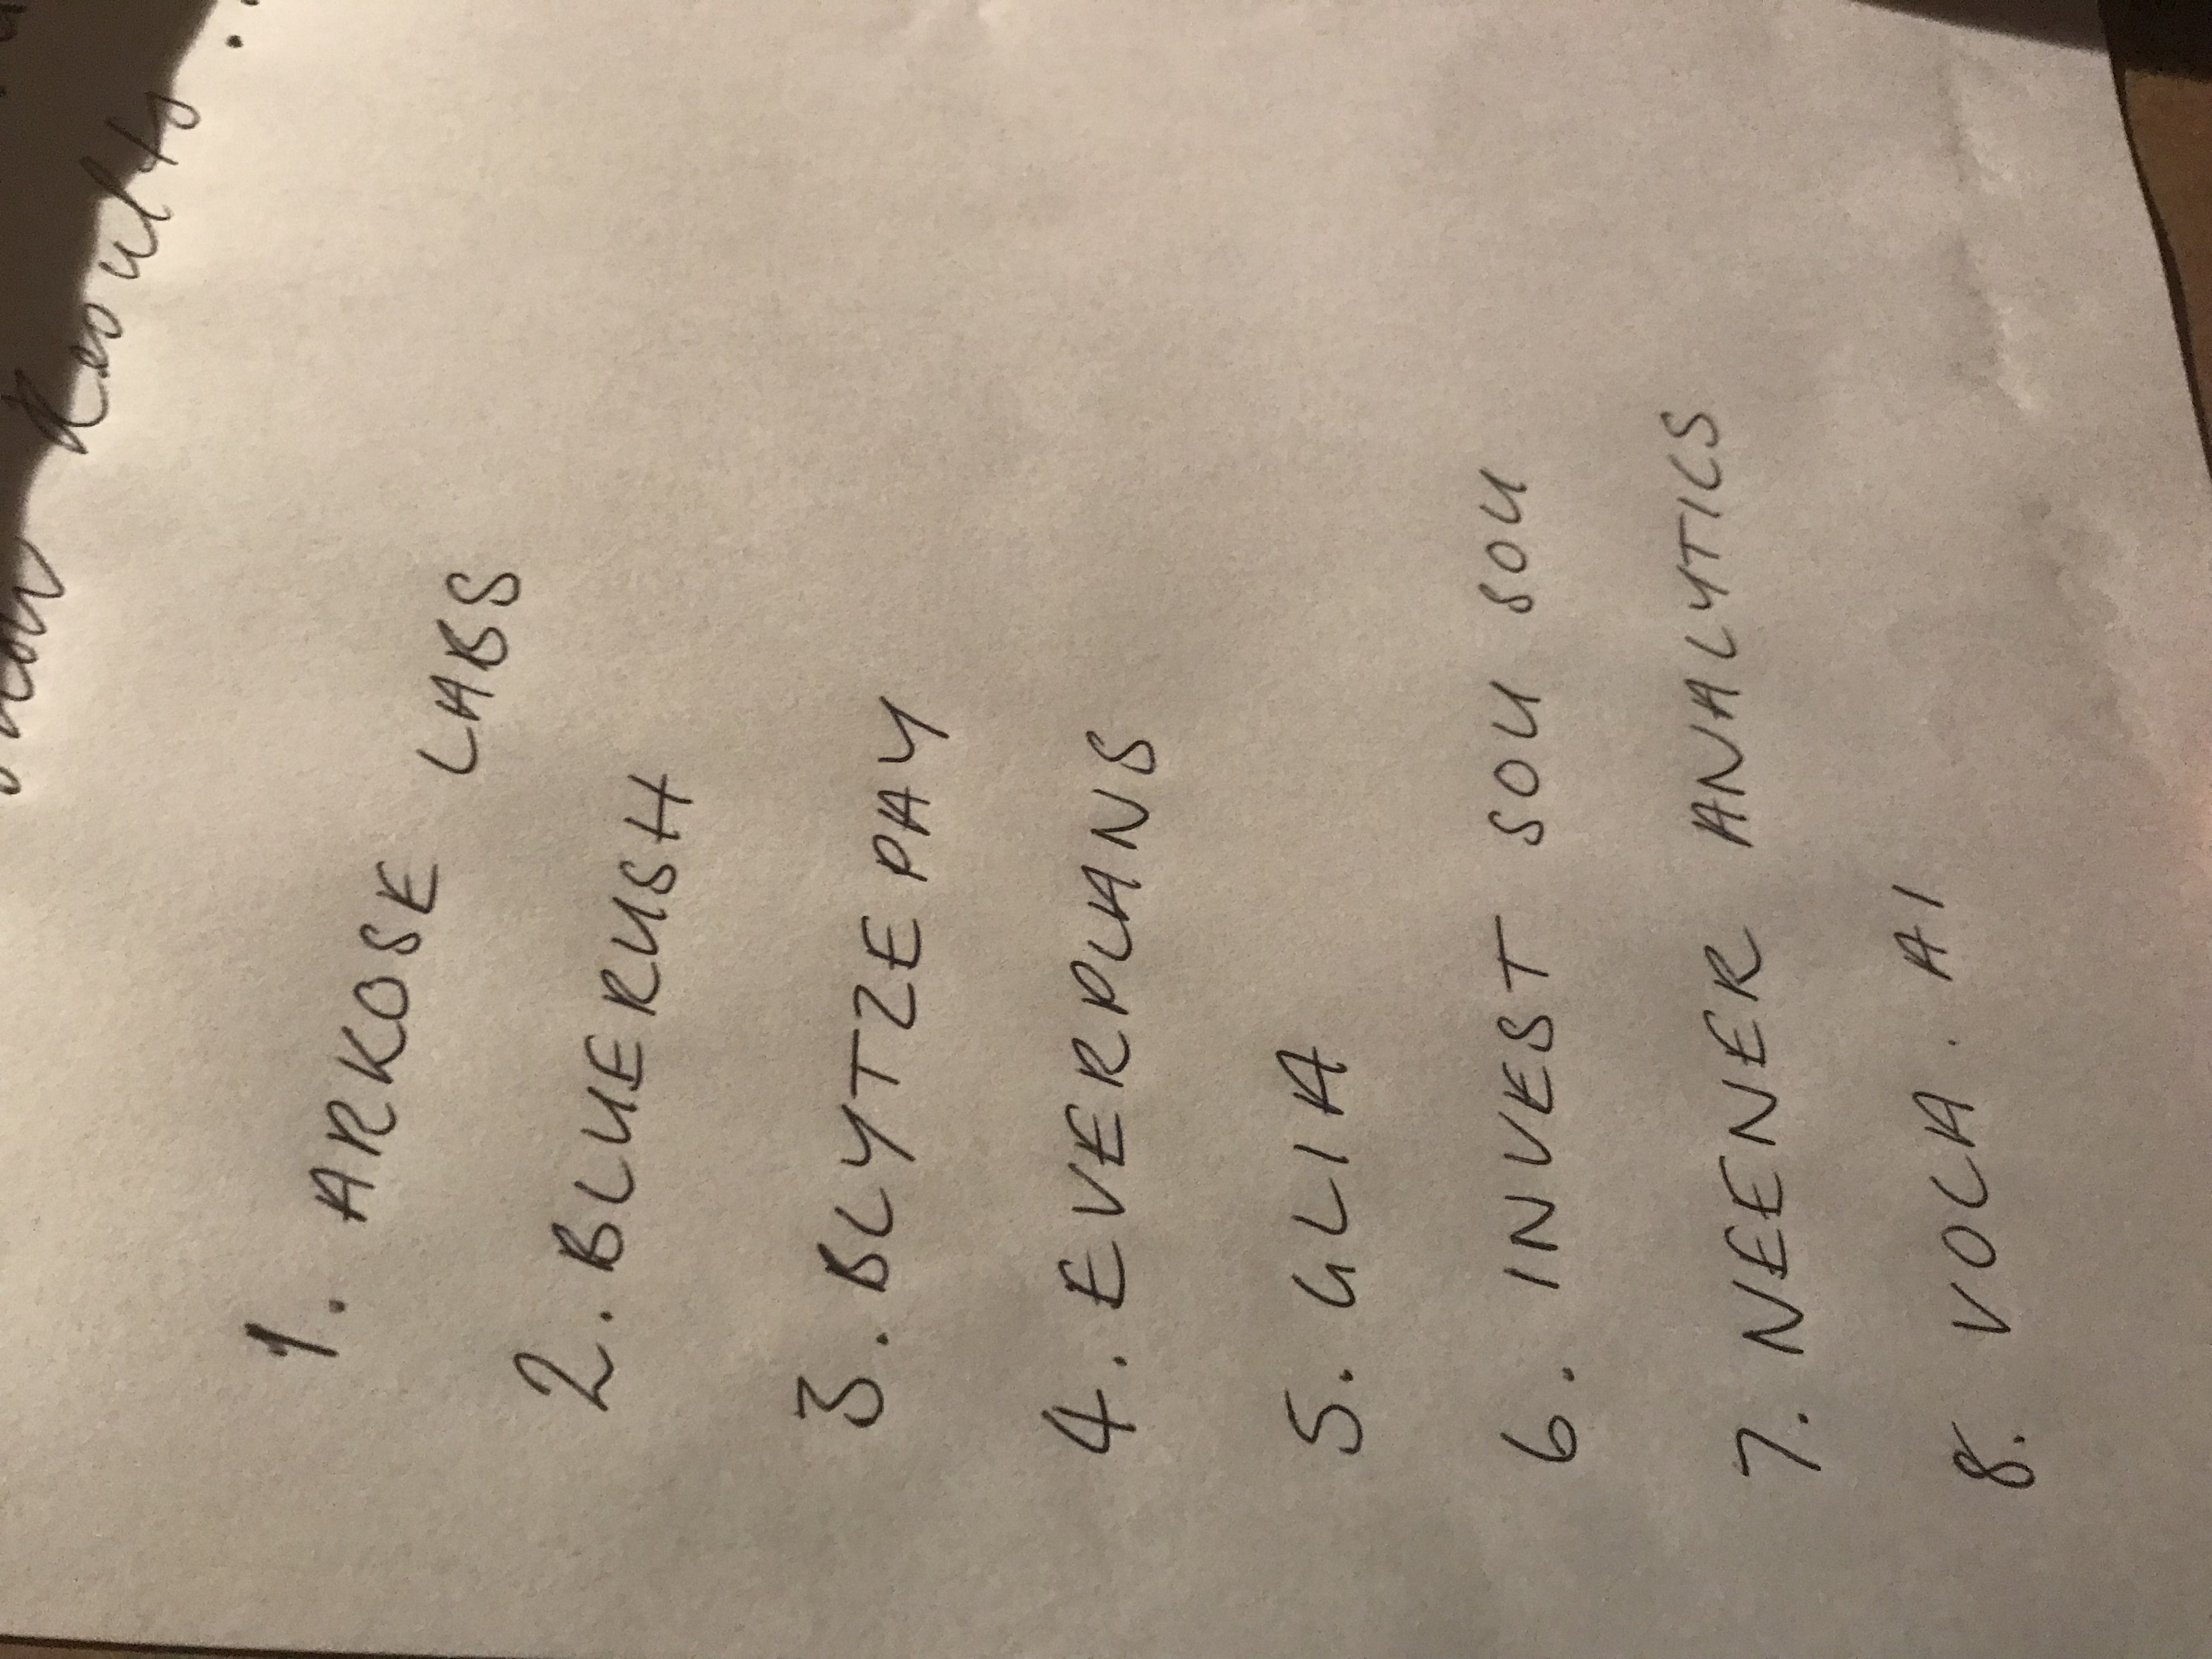 Show Results..
1. ARKOSE LABS
2. BLUERUSH
3. BLYTZE PAY
4. EVERPLANS
5. GLIA
6. INVEST SOU SOU
7. NEENER ANALYTICS
8. VOCA. AI